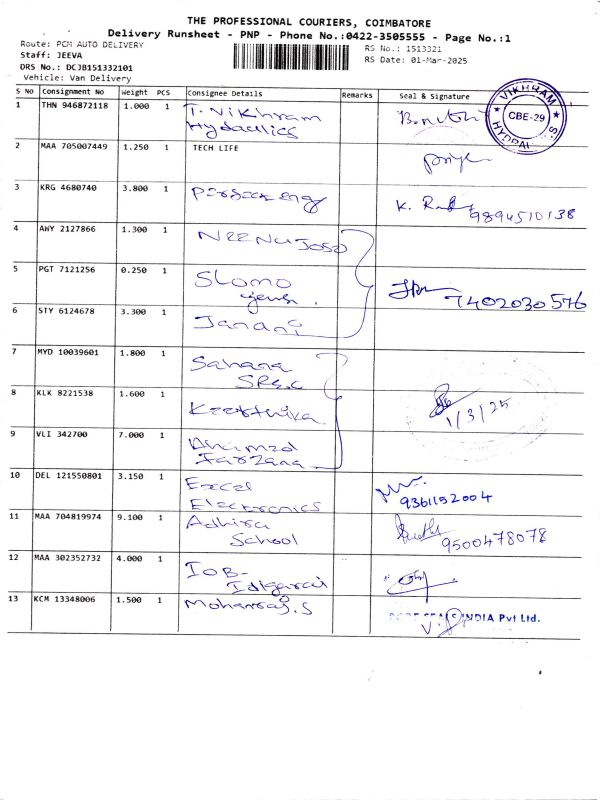 THE PROFESSIONAL COURIERS, COIMBATORE
Delivery Runsheet - PNP - Phone No.:0422-3505555 - Page No.:1
Route: PCM AUTO DELIVERY
RS No.: 1513321
Staff: JEEVA
RS Date: 01-Mar-2025
DRS No.: DCJB151332101
Vehicle: Van Delivery
S NO Consignment No Weight PCS Consignee Details Remarks Seal & Signature
1 THN 946872118 1.000 1 T. Vikhram
Hydraulics
VIKHRAM
CBE-29
2 MAA 705007449 1.250 1 TECH LIFE
3 KRG 4680740 3.800 1 Perfeck engg K.
9894510138
4 AWY 2127866 1.300 1 NEENU JOSO
5 PGT 7121256 0.250 1 Slomo
7402030576
6 STY 6124678 3.300 1 Janani
7 MYD 10039601 1.800 1 Sahana
8 KLK 8221538 1.600 1 Keerthika
1/3/25
9 VLI 342700 7.000 1 Ahamed
Farzana
10 DEL 121550801 3.150 1 Excel
Electronics
9361152004
11 MAA 704819974 9.100 1 Adhira
School
9500478078
12 MAA 302352732 4.000 1 IOB-
Idigarai
13 KCM 13348006 1.500 1 Mohanraj. S
INDIA Pvt Ltd.